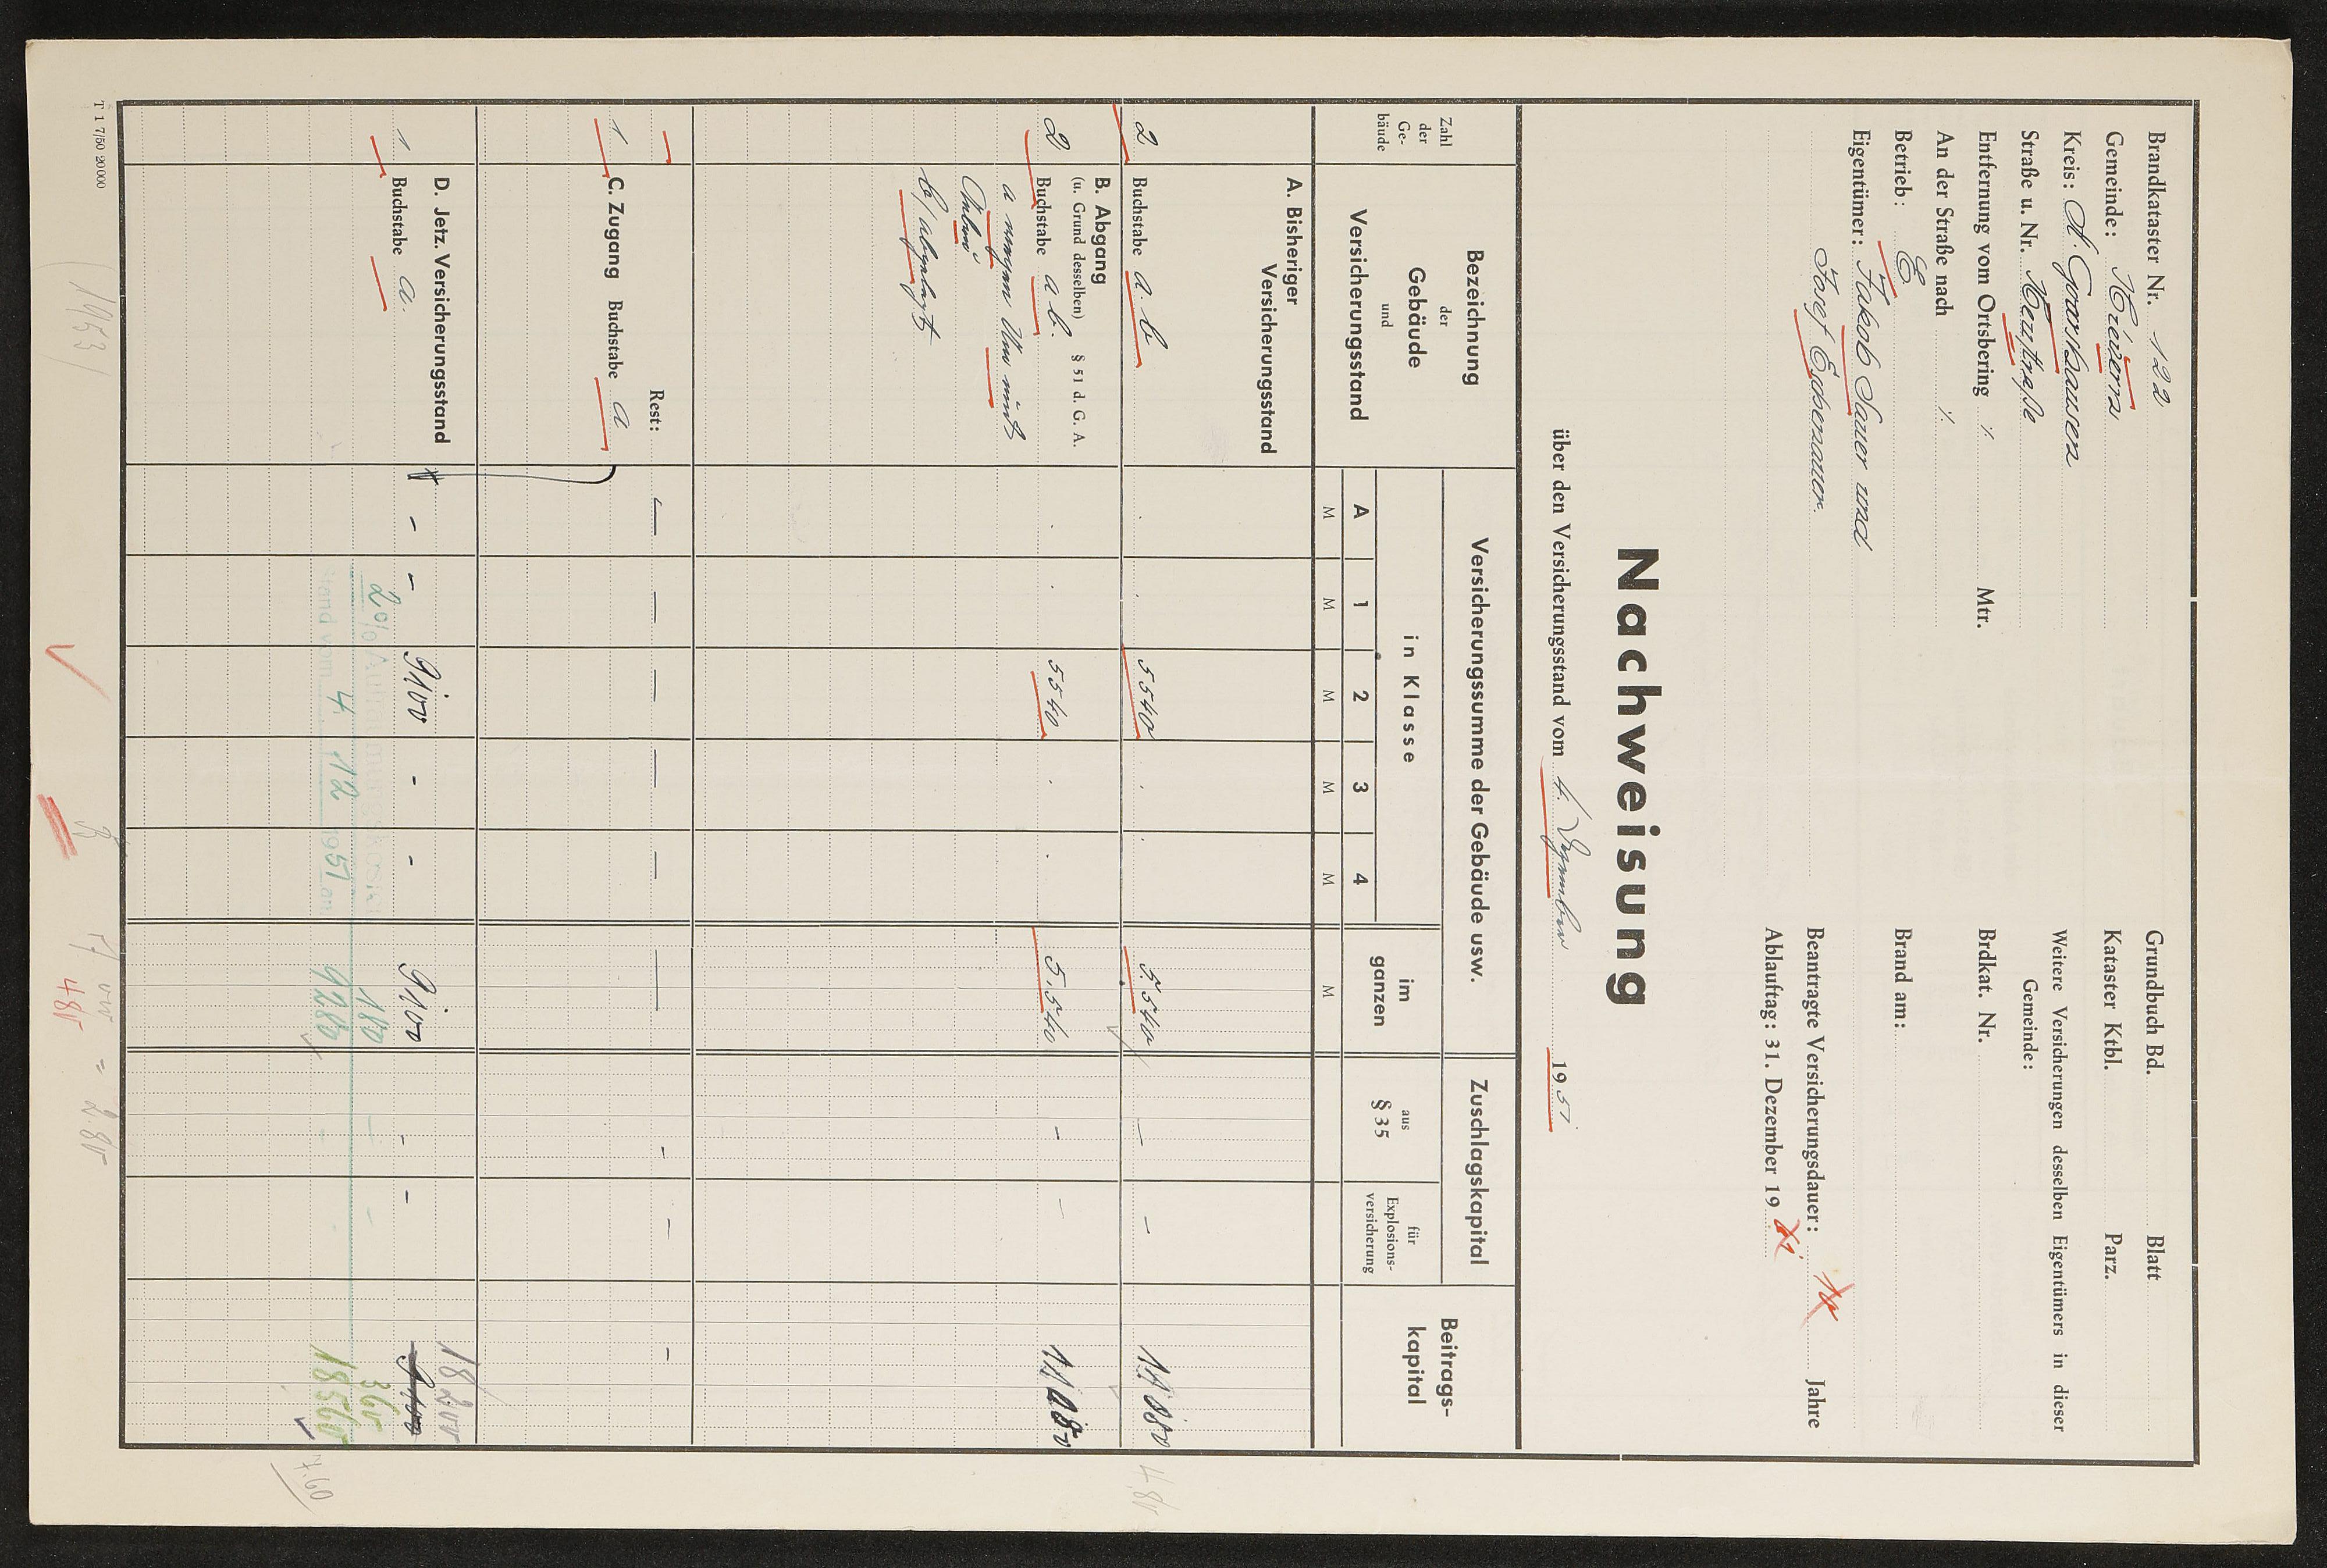 Brandkataster Nr. 122
Grundbuch Bd. Blatt
Gemeinde: Nievern
Kataster Ktbl. Parz.
Kreis: St. Goarshausen
Weitere Versicherungen desselben Eigentümers in dieser
Straße u. Nr.
Gemeinde:
Entfernung vom Ortsbering ⁒ Mtr.
Brdkat. Nr.
An der Straße nach ⁒
Betrieb: E
Brand am:
Eigentümer: Jakob Sauer und
Josef
Beantragte Versicherungsdauer: Jahre
Ablauftag: 31. Dezember 19
Nachweisung
über den Versicherungsstand vom 4. Dezember 1951
Zahl der Ge- bäude
Bezeichnung der Gebäude und Versicherungsstand
Versicherungssumme der Gebäude usw.
Zuschlagskapital
Beitrags- kapital
in Klasse
im ganzen
aus § 35
für Explosions- versicherung
A 1 2 3 4
M M M M M M
A. Bisheriger
Versicherungsstand
2 Buchstabe a. b 5540 5540 – – 11080
4.80
B. Abgang
(u. Grund desselben) § 51 d. G. A.
2 Buchstabe a b. 5540 5.540 – – 11080
a wegen
b/ abgelegt
Rest: — — — — — — - – –
1 C. Zugang Buchstabe a
D. Jetz. Versicherungsstand
18200
1 Buchstabe a. - - 9100 - - 9100 - - 9100
2% Aufräumungskosten 180 – – 360
Stand vom 4. 12 1951 an 9280 - - 18560
7.60
T 1 7/50 20000
(1953)
= 2.80
480